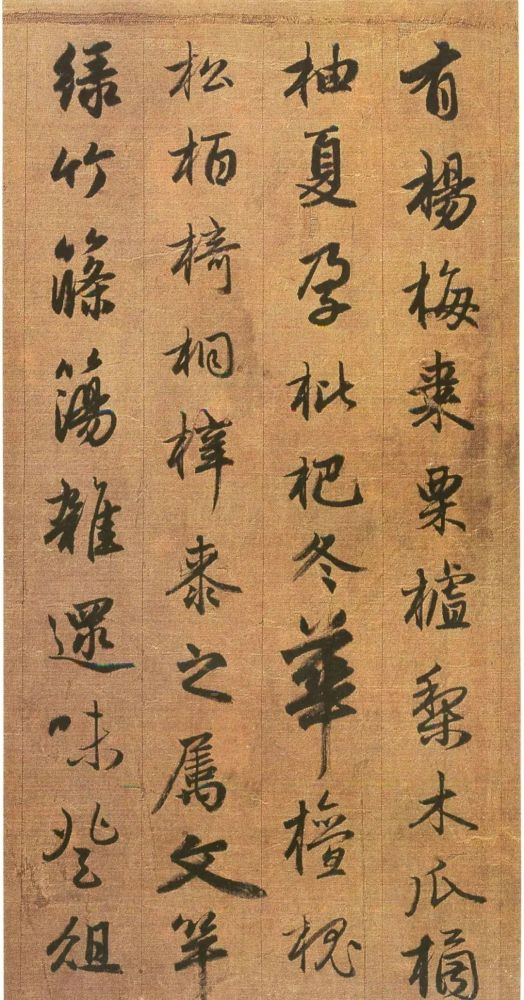 有楊梅棗栗樝梨木瓜橘
柚夏孕枇杷冬華檀槐
松栢椅桐梓桼之屬文竿
綠竹篠簜雜遝味登俎